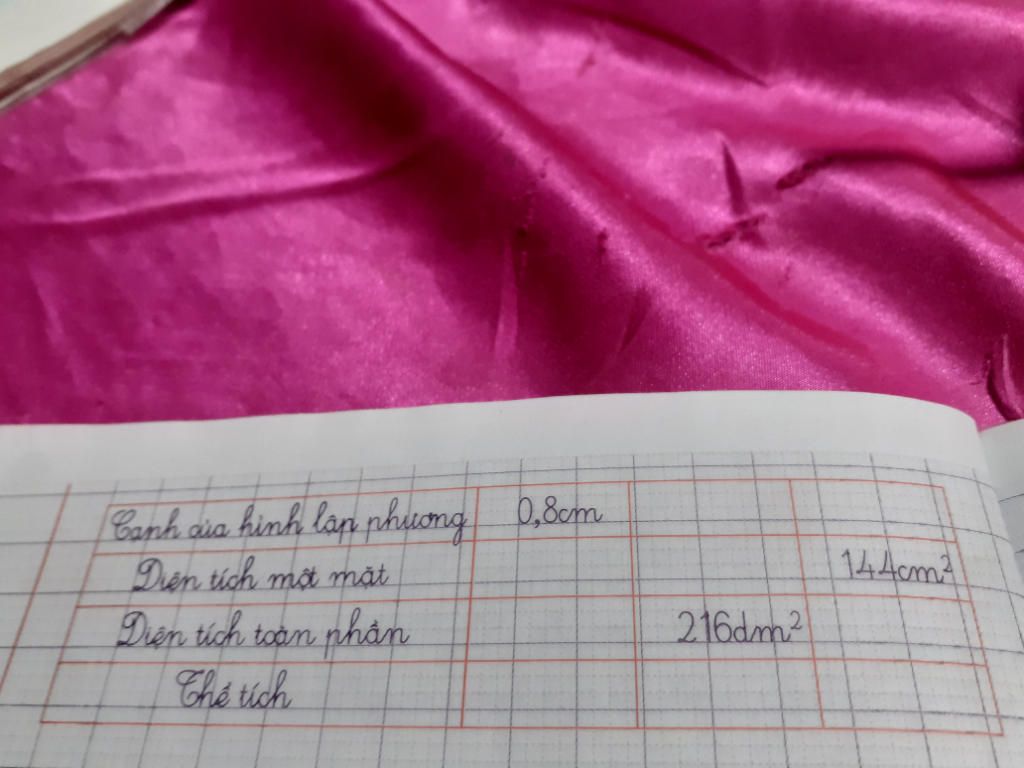 Cạnh của hình lập phương 0,8cm
Diện tích một mặt 144cm²
Diện tích toàn phần 216dm²
Thể tích